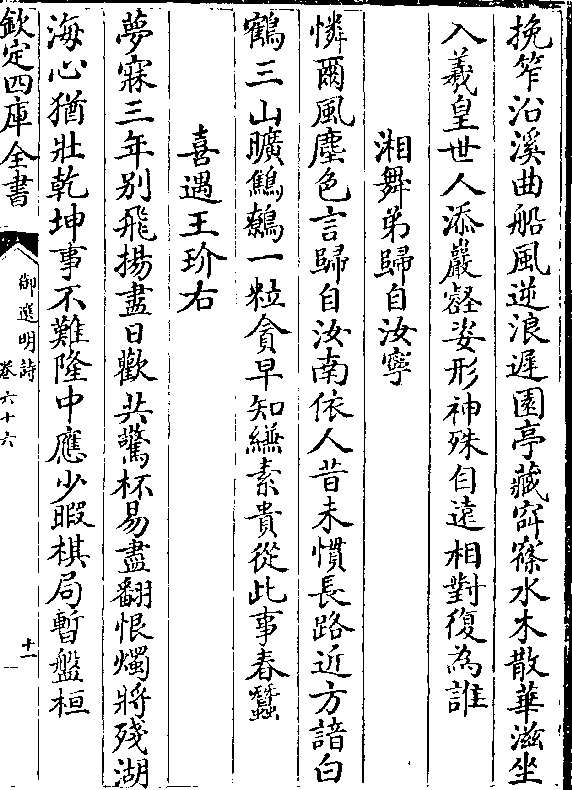 挽笮沿溪曲船風逆浪遲園亭藏窅窱水木散華滋坐
入羲皇世人添巖壑姿形神殊自遠相對復為誰
湘舞弟歸自汝寧
憐爾風塵色言歸自汝南依人昔未慣長路近方諳白
鶴三山曠鷦鷯一粒貪早知縑素貴從此事春蠶
喜遇王玠右
夢寐三年别飛揚盡日歡共驚杯易盡翻恨燭將殘湖
海心猶壯乾坤事不難隆中應少暇棋局暫盤桓
欽定四庫全書
御選明詩
卷六十六
十一